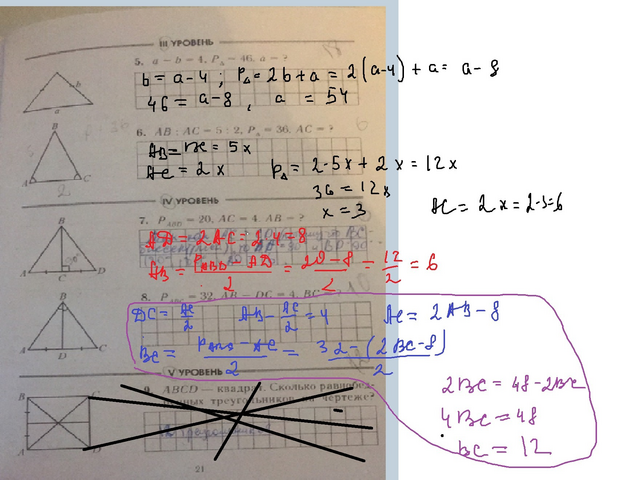 III УРОВЕНЬ
5. a − b = 4, P△ = 46, a = ?
b = a-4 ; P△ = 2b+a = 2(a-4) + a = a-8
46 = a-8 , a = 54
b
a
6. AB : AC = 5 : 2, P△ = 36, AC = ?
AB = BC = 5x
AC = 2x P△ = 2·5x + 2x = 12x
36 = 12x
x = 3 AC = 2x = 2·3=6
B
A C
2
IV УРОВЕНЬ
7. P ABD = 20, AC = 4, AB = ?
AD = 2AC = 2·4 = 8
AB = P ABD - AD / 2 = 20-8 / 2 = 12 / 2 = 6
B
A C D
8. P ABC = 32, AB − DC = 4, BC = ?
DC = AC / 2 AB - AC / 2 = 4 AC = 2AB-8
BC = P ABC - AC / 2 = 32-(2BC-8) / 2
2BC = 48-2BC
4BC = 48
BC = 12
B
A D C
V УРОВЕНЬ
9. ABCD — квадрат. Сколько равнобед-
ренных треугольников на чертеже?
B C
A D
21